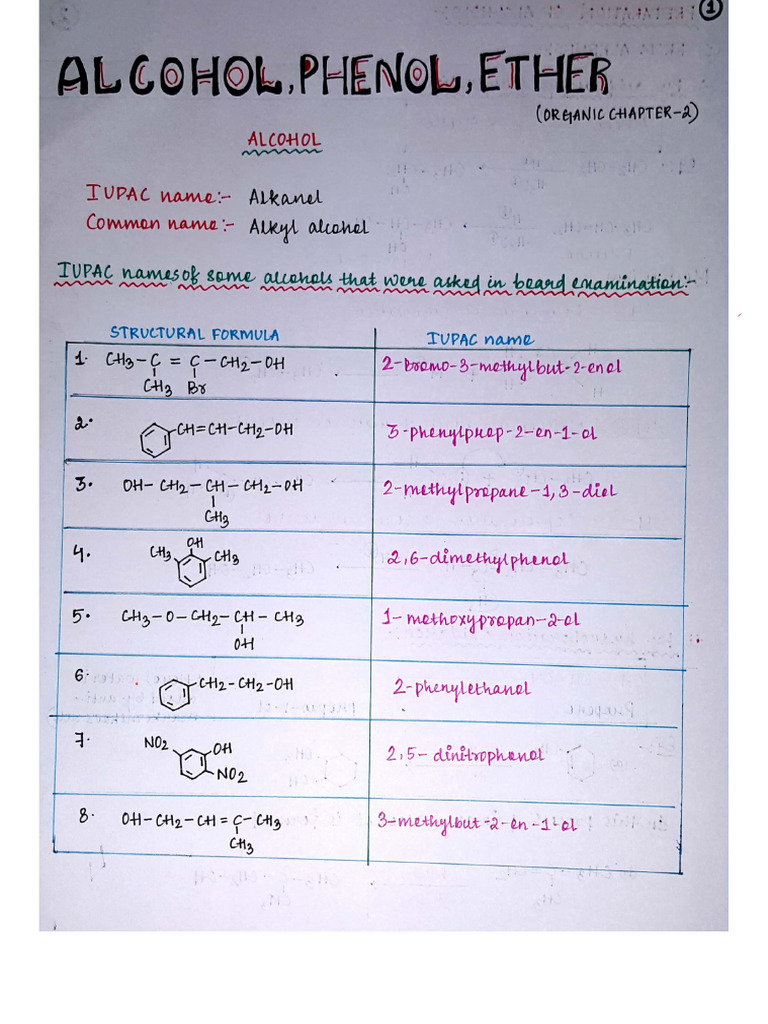 1
ALCOHOL, PHENOL, ETHER
(ORGANIC CHAPTER-2)
ALCOHOL
IUPAC name:- Alkanol
Common name:- Alkyl alcohol
IUPAC names of some alcohols that were asked in board examination:-
STRUCTURAL FORMULA IUPAC name
1. CH3-C = C-CH2-OH 2-bromo-3-methylbut-2-enol
CH3 Br
2. CH=CH-CH2-OH 3-phenylprop-2-en-1-ol
3. OH-CH2-CH-CH2-OH 2-methylpropane-1,3-diol
CH3
4. OH
CH3 CH3 2,6-dimethylphenol
5. CH3-O-CH2-CH-CH3 1-methoxypropan-2-ol
OH
6. CH2-CH2-OH 2-phenylethanol
7. NO2 OH 2,5-dinitrophenol
NO2
8. OH-CH2-CH=C-CH3 3-methylbut-2-en-1-ol
CH3